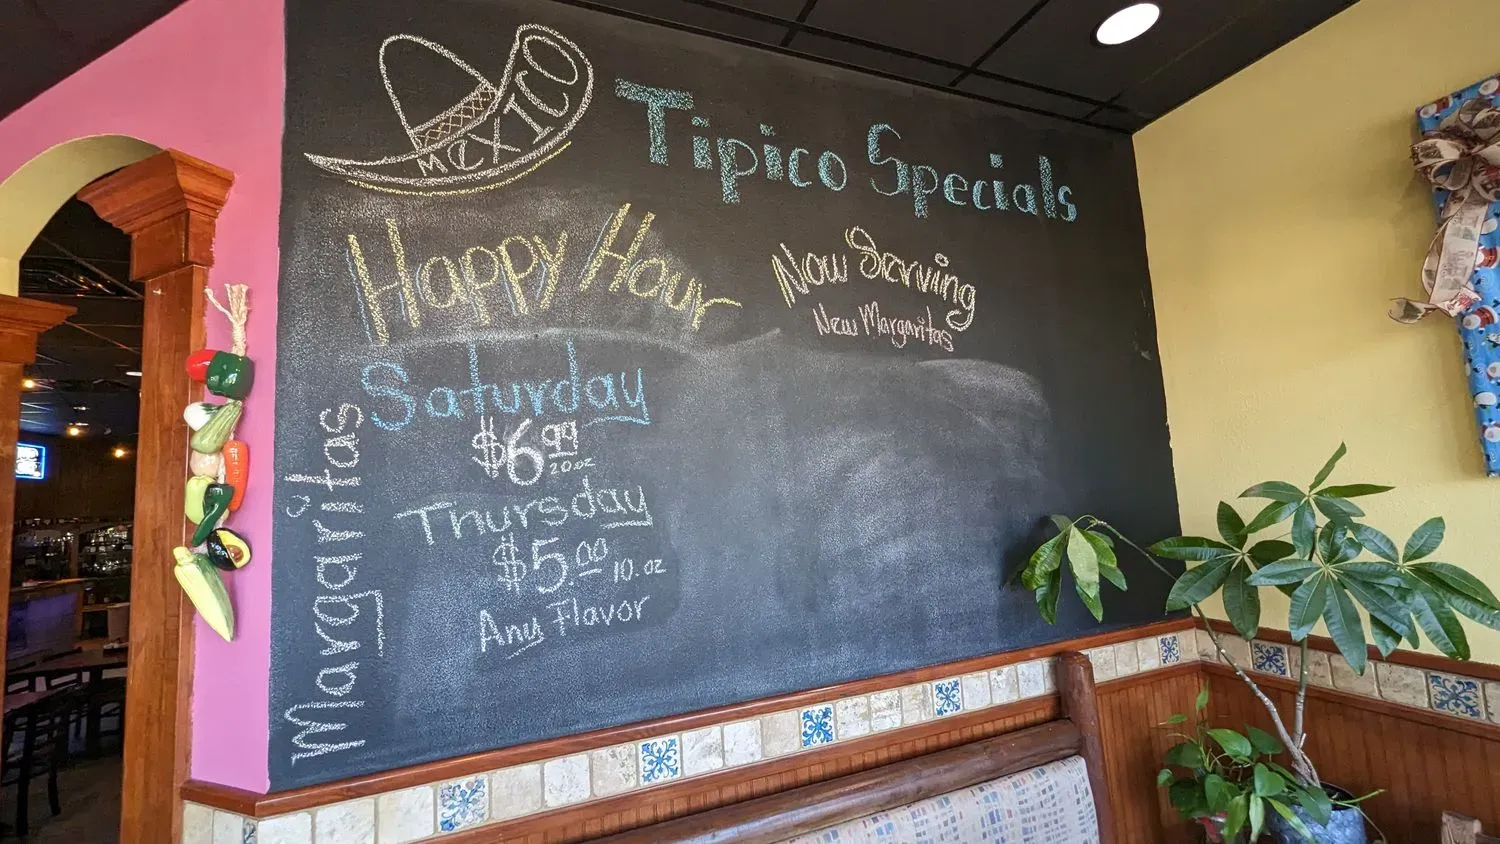 MEXICO
Tipico Specials
Happy Hour
Now Serving
New Margaritas
Margaritas
Saturday
$6.99
20.oz
Thursday
$5.00 10.oz
Any Flavor